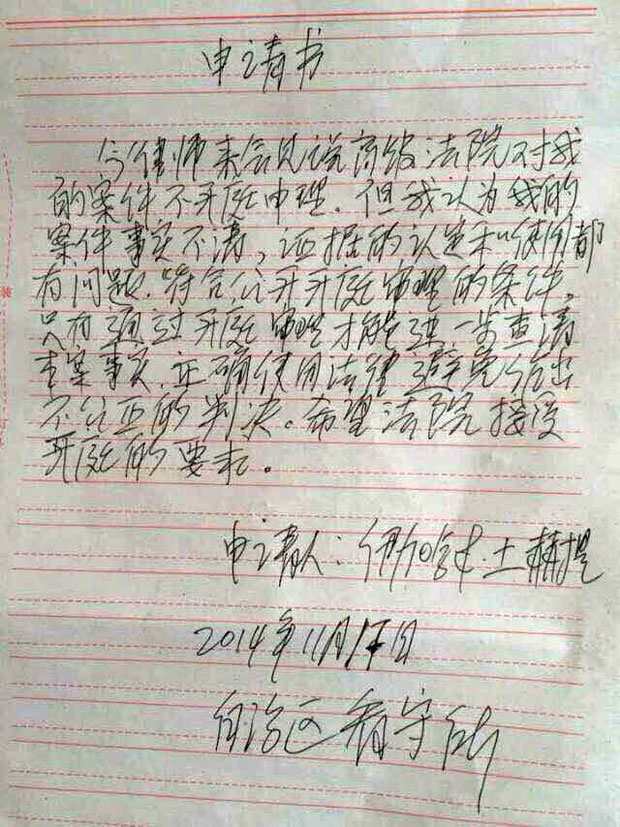 申请书
今律师来会见说高级法院对我
的案件不开庭审理.但我认为我的
案件事实不清,证据的认定和使用都
有问题.符合公开开庭审理的条件,
只有通过开庭审理才能进一步查清
本案事实,正确使用法律避免作出
不公正的判决。希望法院接受
开庭的要求。
申请人:伊力哈木·土赫提
2014年11月17日
自治区看守所